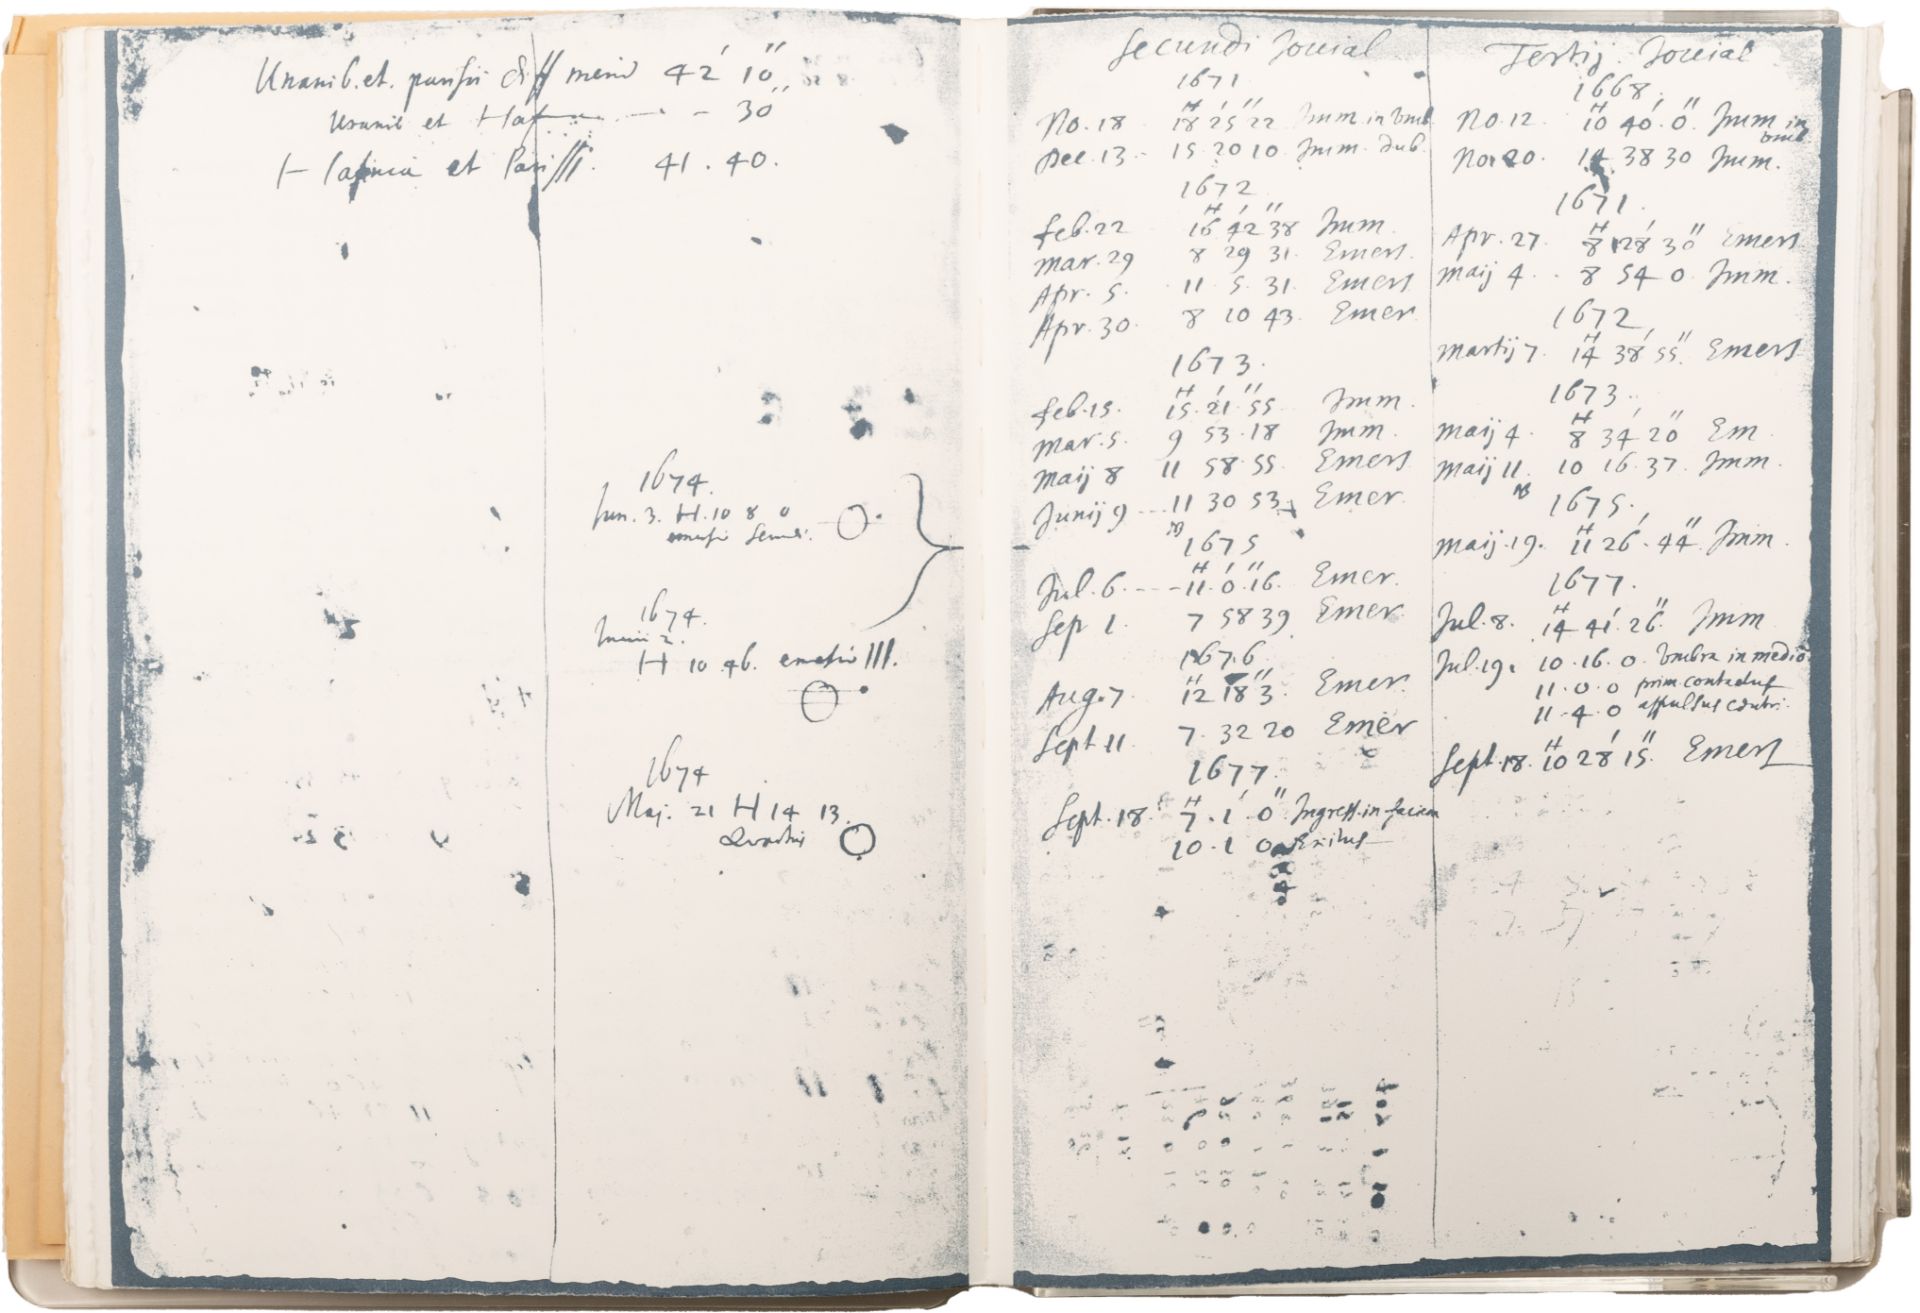 Uranib. et. parisii diff merid 42′ 10″
Uranib et Hafn - 30″
Hafnia et Parisii. 41. 40.
1674.
Jun. 3. H. 10 8 0
emersio secundi.
1674.
Junii 2.
H 10 46. emersio III.
1674
Maj. 21 H 14 13.
Secundi Jovial
1671
No. 18 18H 25′ 22″ Imm. in umb
Dec. 13. 15 20 10 Imm. dub.
1672
Feb. 22 16H 42′ 38″ Imm.
Mar. 29 8 29 31. Emers.
Apr. 5. 11 5. 31. Emers
Apr. 30. 8 10 43. Emer.
1673.
Feb. 15. 15H 21′ 55″ Imm.
Mar. 5. 9 53. 18 Imm.
Maij 8 11 58. 55. Emers
Junij 9 11 30 53 Emer.
1675
Jul. 6 11H. 0′. 16″. Emer.
Sep 1. 7 58 39 Emer.
1676
Aug. 7 12H 18′ 3″. Emer.
Sept 11 7. 32 20 Emer
1677.
Sept. 18. 7H. 1′. 0″. Ingress. in faciem
10. 1 0 Exitus
Tertij. Jovial
1668.
No. 12 10H 40′. 0″. Imm in
umb
Nov 20. 14 38 30 Imm.
1671.
Apr. 27. 8H 28′ 30″ Emers
Maij 4. 8 54 0. Imm.
1672
Martij 7. 14H 38′ 55″. Emers
1673.
Maij 4. 8H 34′ 20″ Em.
Maij 11. 10 16. 37. Imm.
1675.
Maij. 19. 11H 26′. 44″ Imm.
1677.
Jul. 8. 14H 41′. 26″ Imm
Jul. 19. 10. 16. 0. Umbra in medio
11. 0. 0 prim contactus
11. 4. 0
Sept. 18. 10H 28′ 15″. Emers